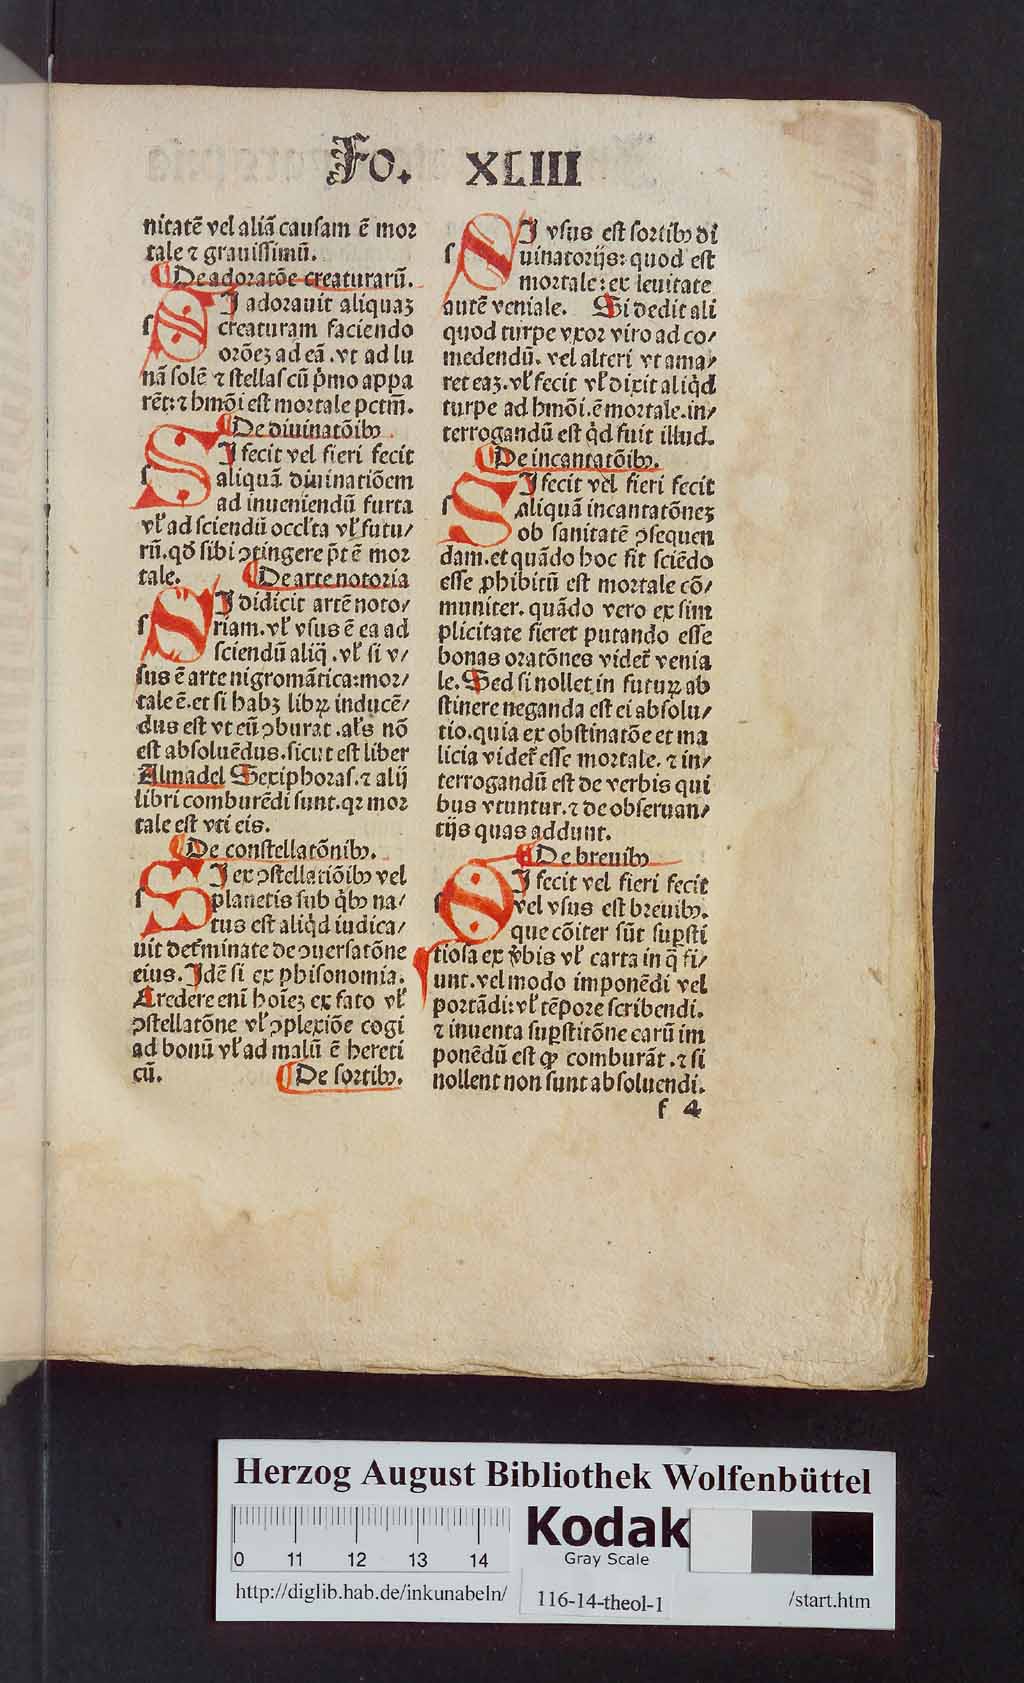 Fo. XLIII
nitatē vel aliā causam ē mor
tale ⁊ grauissimū.
¶ De adoratōe creaturarū.
SI adorauit aliquaꝫ
creaturam faciendo
orōeꝫ ad eā . vt ad lu
nā solē ⁊ stellas cū p̄mo appa
rēt: ⁊ hmōi est mortale pctm̄.
¶ De diuinatōibꝰ
SI fecit vel fieri fecit
aliquā diuinatiōem
ad inueniendū furta
vl̓ ad sciendū occl̓ta vl̓ futu/
rū. qd̓ sibi ꝯtingere pt̄ ē mor
tale. ¶ De arte notoria
SI didicit artē noto/
riam. vl̓ vsus ē ea ad
sciendū aliq̇ . vl̓ si v/
sus ē arte nigromātica: mor/
tale ē. et si habꝫ libꝝ inducē/
dus est vt eū ꝯburat . al̓s nō
est absoluēdus. sicut est liber
Almadel Sexiphoras. ⁊ alij
libri comburēdi sunt. qꝛ mor
tale est vti eis.
¶ De constellatōnibꝰ.
SI ex ꝯstellatiōibꝰ vel
planetis sub q̇bꝰ na/
tus est aliq̇d iudica/
uit det̓minate de ꝯuersatōne
eius. Idē si ex phisonomia.
Credere eni hoieꝫ ex fato vl̓
ꝯstellatōne vl̓ ꝯplexiōe cogi
ad bonū vl̓ ad malū ē hereti
cū. ¶ De sortibꝰ.
SI vsus est sortibꝰ di
uinatorijs: quod est
mortale: ex leuitate
autē veniale. Si dedit ali
quod turpe vxor viro ad co/
medendū. vel alteri vt ama/
ret eaꝫ. vl̓ fecit vl̓ dixit aliq̇d
turpe ad hmōi. ē mortale. in/
terrogandū est q̇d fuit illud.
¶ De incantatōibꝰ.
SI fecit vel fieri fecit
aliquā incantatōneꝫ
ob sanitatē ꝯsequen
dam. et quādo hoc fit sciēdo
esse ꝓhibitū est mortale cō/
muniter. quādo vero ex sim
plicitate fieret putando esse
bonas oratōnes videt̓ venia
le. Sed si nollet in futuꝝ ab
stinere neganda est ei absolu/
tio. quia ex obstinatōe et ma
licia videt̓ esse mortale. ⁊ in/
terrogandū est de verbis qui
bus vtuntur. ⁊ de obseruan/
tijs quas addunt.
¶ De breuibꝰ
SI fecit vel fieri fecit
vel vsus est breuibꝰ.
que cōiter sūt suꝑsti
tiosa ex v̓bis vl̓ carta in q̄ fi/
unt. vel modo imponēdi vel
portādi: vl̓ tēpore scribendi.
⁊ inuenta suꝑstitōne earū im
ponēdū est ꝙ comburāt . ⁊ si
nollent non sunt absoluendi.
f 4
Herzog August Bibliothek Wolfenbüttel
0 11 12 13 14
Kodak
Gray Scale
http://diglib.hab.de/inkunabeln/ 116-14-theol-1 /start.htm